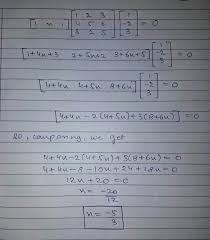 [1 n 1] [1 2 3 / 4 5 6 / 3 2 5] [1 / -2 / 3] = 0
[1+4n+3 2+5n+2 3+6n+5] [1 / -2 / 3] = 0
[4+4n 4+5n 8+6n] [1 / -2 / 3] = 0
[4+4n -2(4+5n) +3(8+6n)] = 0
So, comparing, we get
4+4n-2(4+5n)+3(8+6n)=0
4+4n-8-10n+24+18n=0
12n+20=0
n = -20/12
n = -5/3